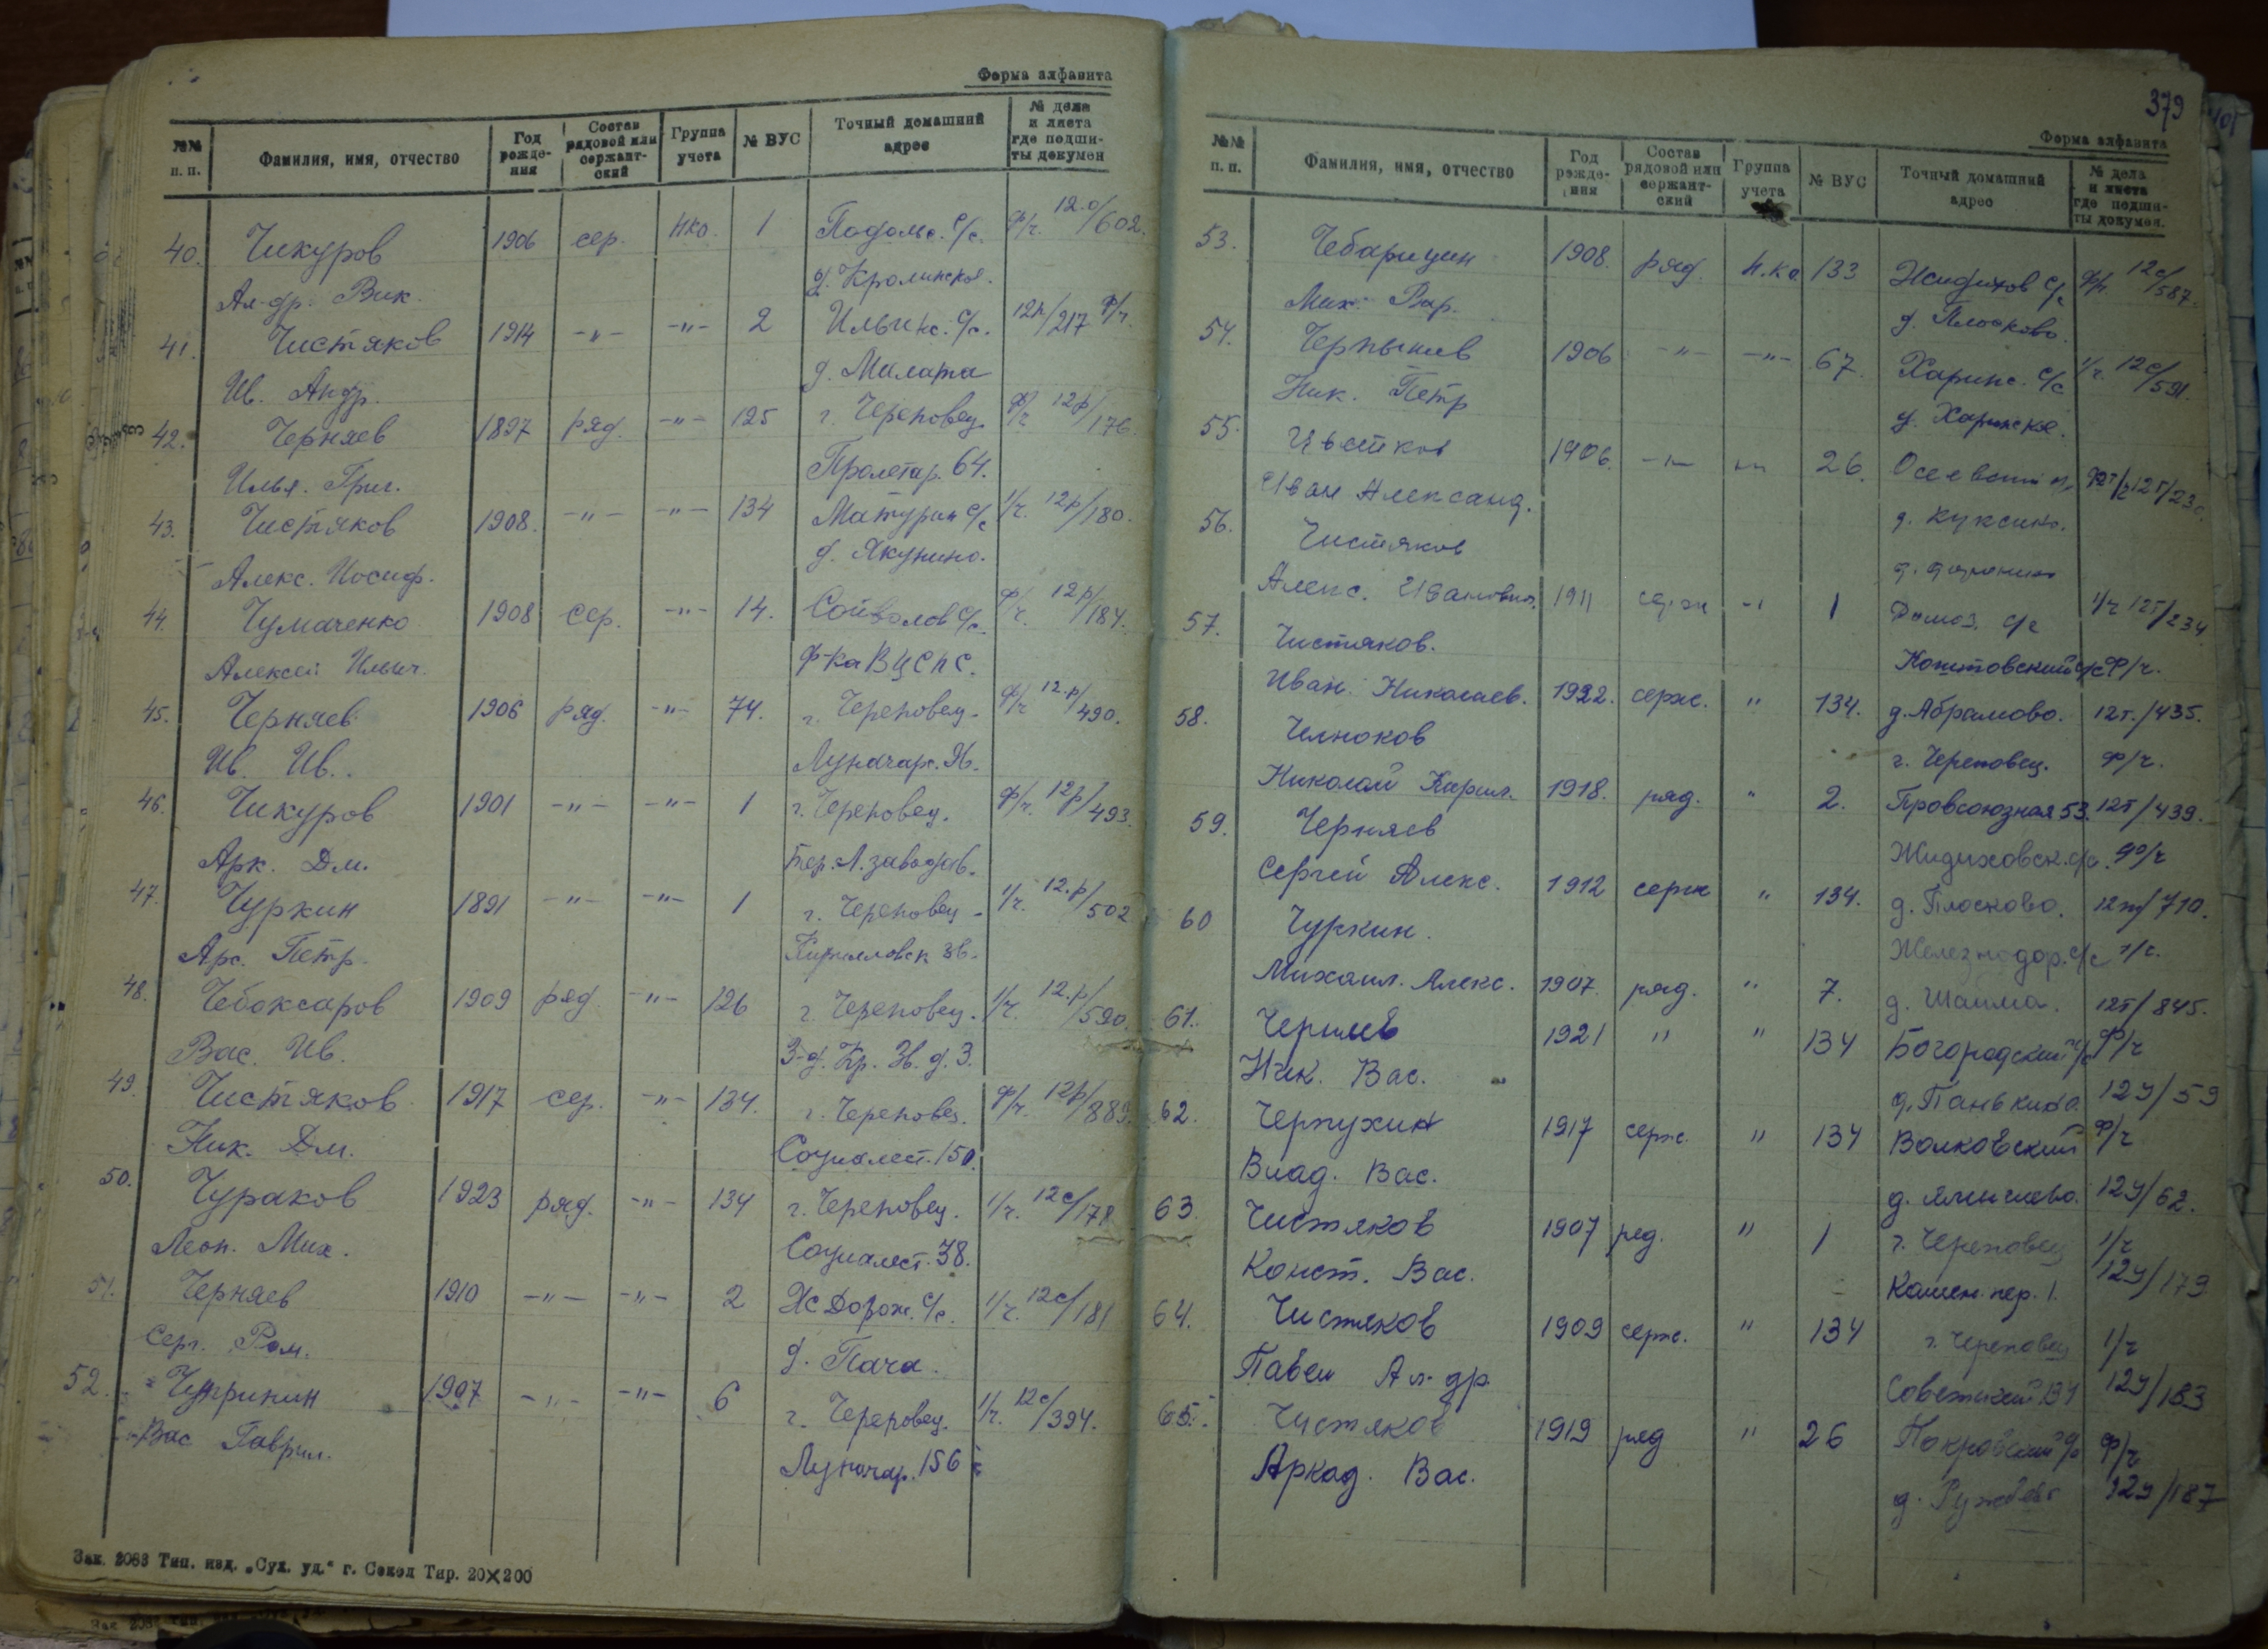 Форма алфавита
№№ п. п. Фамилия, имя, отчество Год рожде-ния Состав рядовой или сержант-ский Группа учета № ВУС Точный домашний адрес № дела и листа где подши-ты докумен
40. Чикуров 1906 сер. нко. 1 Подольс. с/с. ф/ч. 12.о/602.
Ал-др. Вик. д. Кролинское.
41. Чистяков 1914 -"- -"- 2 Ильинс. с/с. 12п/217 ф/ч.
Ив. Андр. д. Малата
42. Черняев 1897 ряд. -"- 125 г. Череповец. ф/ч 12р/176.
Илья. Григ. Пролетар. 64.
43. Чистяков 1908. -"- -"- 134 Матурин с/с 1/ч. 12р/180.
Алекс. Иосиф. д. Якунино.
44. Чумаченко 1908 сер. -"- 14. Сойволов с/с. ф/ч. 12р/184.
Алексей Ильич. ф-ка ВЦСПС.
45. Черняев 1906 ряд. -"- 74. г. Череповец. ф/ч 12.р/490.
Ив. Ив. Луначарс.
46. Чикуров 1901 -"- -"- 1 г. Череповец. ф/ч. 12р/493.
Арк. Дм. Бер. Л. завода
47. Чуркин 1891 -"- -"- 1 г. Череповец 1/ч. 12.р/502
Арс. Петр. Кирилловск 36.
48. Чебоксаров 1909 ряд. -"- 126 г. Череповец. 1/ч. 12.р/590.
Вас. Ив. З-д. Кр. Зв. д. 3.
49. Чистяков 1917 сер. -"- 134. г. Череповец. ф/ч. 12р/889
Ник. Дм. Социалист. 150.
50. Чураков 1923 ряд. -"- 134 г. Череповец. 1/ч. 12с/178
Леон. Мих. Социалист. 38.
51. Черняев 1910 -"- -"- 2 Ж Дорож. с/с. 1/ч. 12с/181
Серг. Ром. д. Пача.
52. 1907 -"- -"- 6 г. Череповец. 1/ч. 12с/394.
Вас Гаврил. Луначар. 156
Зак. 2083 Тип. изд. „Сух. уд." г. Сокол Тир. 20×200
379
Форма алфавита
№№ п. п. Фамилия, имя, отчество Год рожде-ния Состав рядовой или сержант-ский Группа учета № ВУС Точный домашний адрес № дела и листа где подши-ты докумен.
53. Чебарицин 1908. ряд. н.ко 133 Жидихов с/с ф/ч. 12с/587.
Мих. Вар. д. Плосково.
54. 1906 -"- -"- 67. Харинс. с/с 1/ч. 12с/591.
Ник. Петр д. Харинское.
55. Цветков 1906. -"- -"- 26.
Иван Александ. д. Куксино.
56. Чистяков
Алекс. Иванович. 1911 серж -"- 1 Домоз. с/с 1/ч 12т/234
57. Чистяков. с/с ф/ч.
Иван. Николаев. 1922. серж. " 134. д. Абрамово. 12т./435.
58. Челноков г. Череповец. ф/ч.
Николай Кирил. 1918. ряд. " 2. Провсоюзная 53. 12т/439.
59. Черняев Жидиховск. с/с. ф/ч
Сергей Алекс. 1912 серж " 134. д. Плосково. 12т/710.
60 Чуркин. Железнодор. с/с
Михаил. Алекс. 1907. ряд. " 7. д. Шайма. 12т/845.
61. Черняев 1921 " " 134 Богородский с/с ф/ч
Ник. Вас. д. Панькино. 12у/59
62. Черпухин 1917 серж. " 134 Волковский ф/ч
Влад. Вас. 12у/62.
63. Чистяков 1907 ряд. " 1 г. Череповец 1/ч
Конст. Вас. Камен. пер. 1. 12у/179
64. Чистяков 1909 серж. " 134 г. Череповец 1/ч
Павел Ал-др. Советский 12у/183
65. Чистяков 1919 ряд " 26 Покровский ф/ч
Аркад. Вас. 12у/187